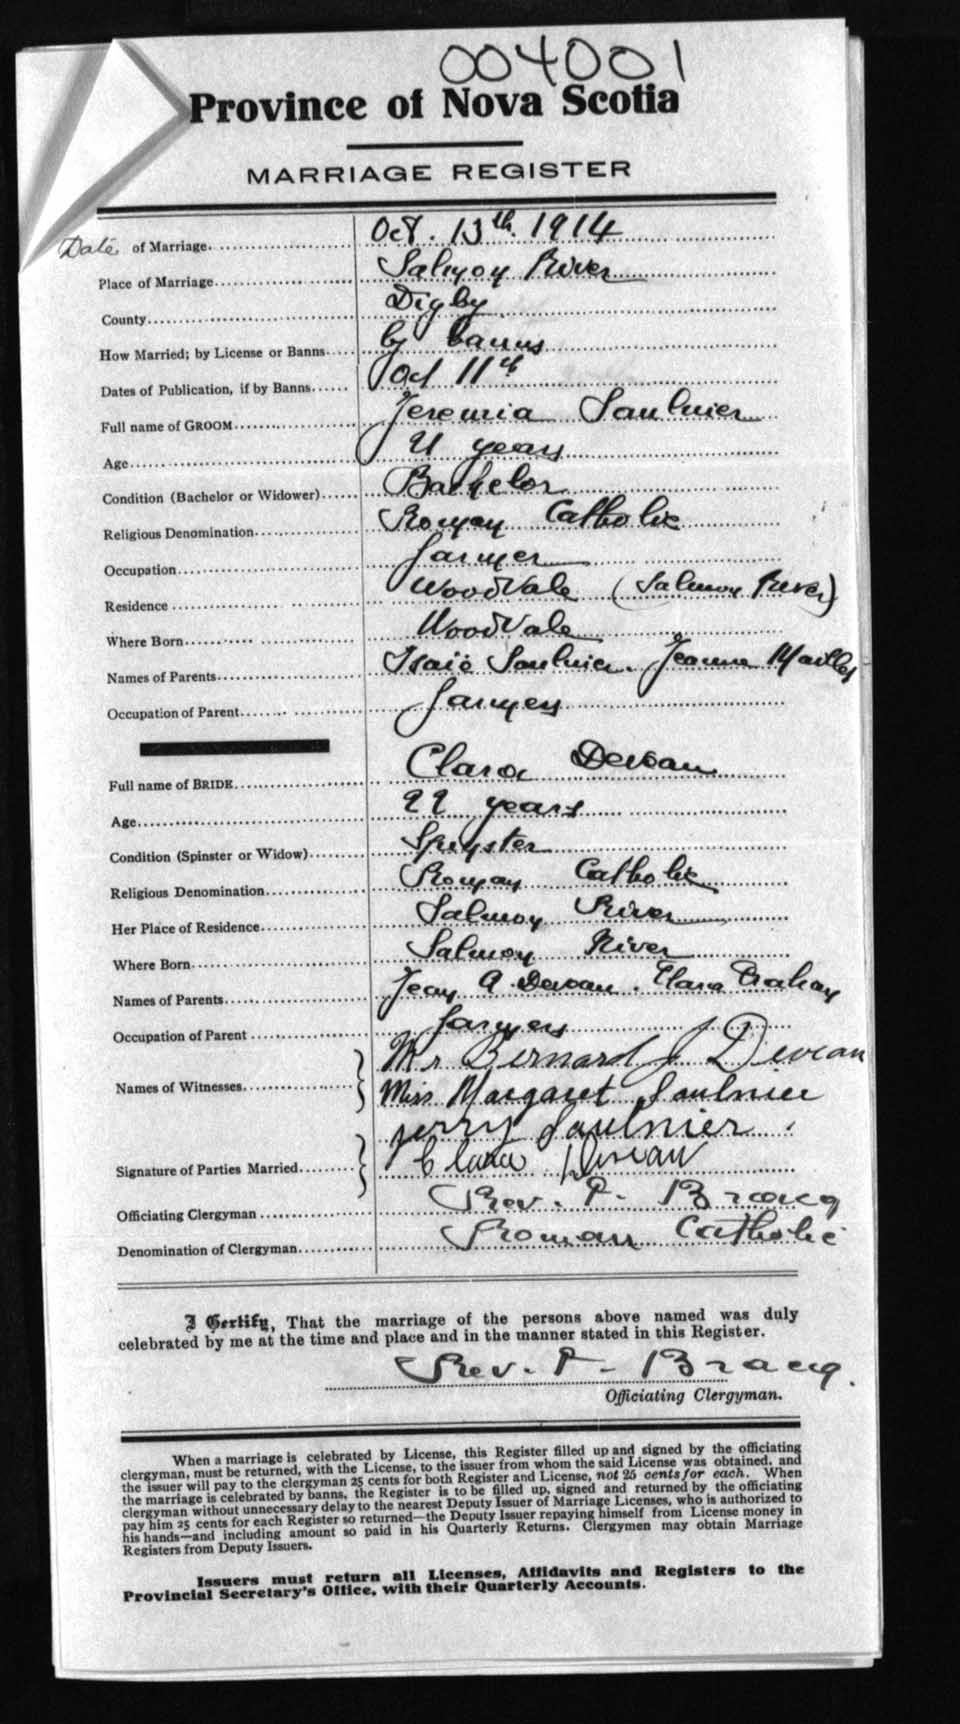 004001
Province of Nova Scotia
MARRIAGE REGISTER
Date of Marriage Oct. 13th. 1914
Place of Marriage Salmon River
County Digby
How Married; by License or Banns by banns
Dates of Publication, if by Banns Oct 11th
Full name of GROOM Jeremia Saulnier
Age 21 years
Condition (Bachelor or Widower) Bachelor
Religious Denomination Roman Catholic
Occupation farmer
Residence WoodVale (Salmon River)
Where Born WoodVale
Names of Parents Isaie Saulnier. Jeanne Maillet
Occupation of Parent farmers
Full name of BRIDE Clara Deveau
Age 22 years
Condition (Spinster or Widow) Spinster
Religious Denomination Roman Catholic
Her Place of Residence Salmon River
Where Born Salmon River
Names of Parents Jean A. Deveau. Elara
Occupation of Parent farmers
Names of Witnesses Mr Bernard J Deveau
Miss Margaret Saulnier
Jerry Saulnier.
Signature of Parties Married Clara Deveau
Officiating Clergyman Rev. P. Bracq
Denomination of Clergyman Roman Catholic
I Certify, That the marriage of the persons above named was duly
celebrated by me at the time and place and in the manner stated in this Register.
Rev. P. Bracq.
Officiating Clergyman.
When a marriage is celebrated by License, this Register filled up and signed by the officiating
clergyman, must be returned, with the License, to the issuer from whom the said License was obtained, and
the issuer will pay to the clergyman 25 cents for both Register and License, not 25 cents for each. When
the marriage is celebrated by banns, the Register is to be filled up, signed and returned by the officiating
clergyman without unnecessary delay to the nearest Deputy Issuer of Marriage Licenses, who is authorized to
pay him 25 cents for each Register so returned—the Deputy Issuer repaying himself from License money in
his hands—and including amount so paid in his Quarterly Returns. Clergymen may obtain Marriage
Registers from Deputy Issuers.
Issuers must return all Licenses, Affidavits and Registers to the
Provincial Secretary's Office, with their Quarterly Accounts.